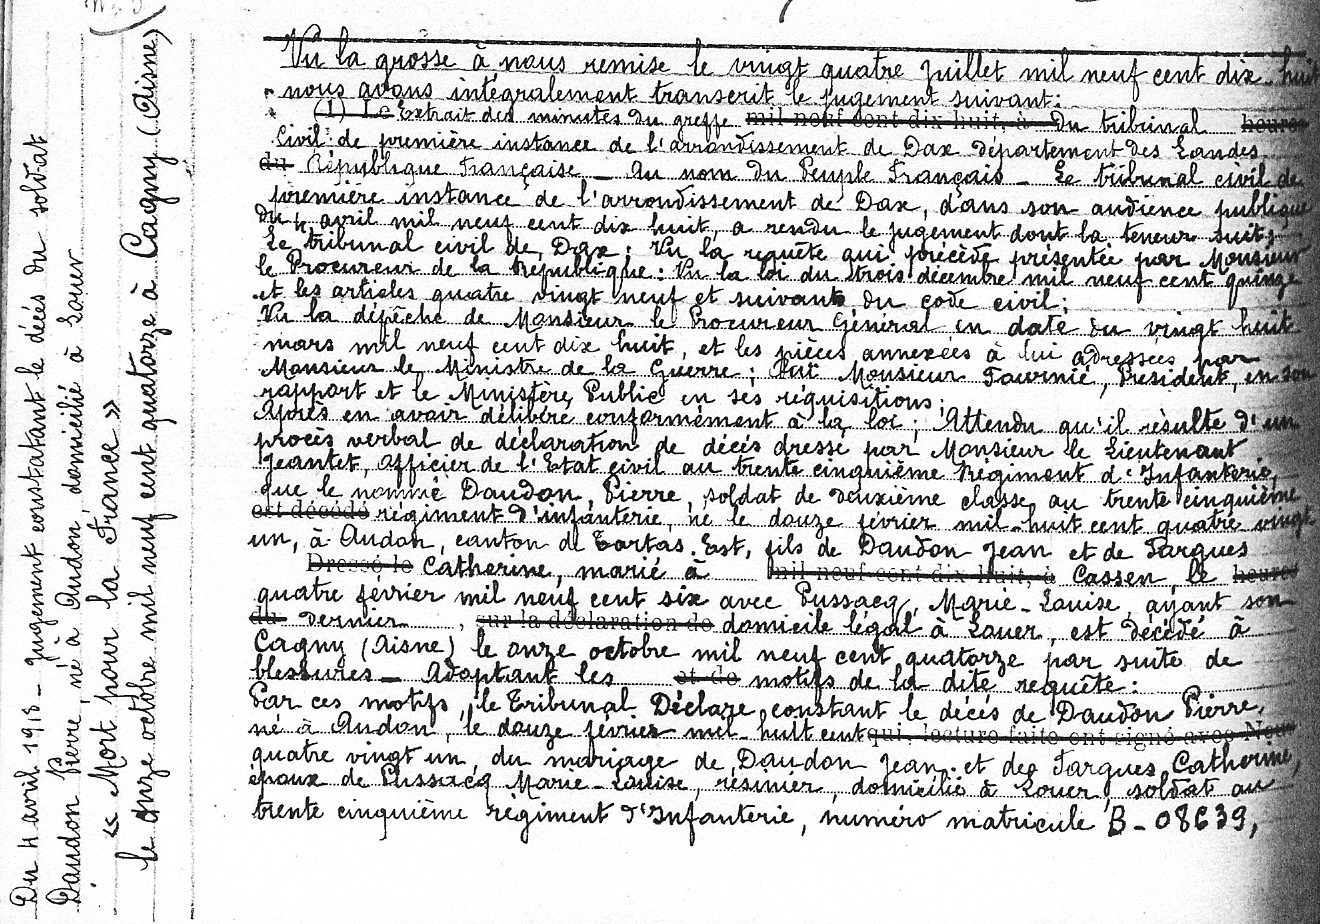 Du 4 avril 1918 – jugement constatant le décés du soldat
Daudon Pierre, né à Audon, domicilié à Louer
« Mort pour la France »
le onze octobre mil neuf cent quatorze à Cagny (Aisne)
Vu la grosse à nous remise le vingt quatre Juillet mil neuf cent dix-huit
nous avons intégralement transcrit le jugement suivant:
(1) Le Extrait des minutes du greffe mil neuf cent dix-huit, à Du tribunal heures
Civil de première instance de l'arrondissement de Dax département des Landes.
du République Française _ Au nom du Peuple Français _ Le tribunal civil de
première instance de l'arrondissement de Dax, dans son audience publique
du 4 avril mil neuf cent dix huit, a rendu le jugement dont la teneur suit;
Le tribunal civil de Dax; Vu la requête qui précède présentée par Monsieur
le Procureur de la République: Vu la loi du trois décembre mil neuf cent quinze
et les articles quatre vingt neuf et suivants du code civil;
Vu la dépêche de Monsieur le Procureur Général en date du vingt huit
mars mil neuf cent dix huit, et les pièces annexées à lui adressées par
Monsieur le Ministre de la Guerre; Ouï Monsieur Tournié, Président, en son
rapport et le Ministère Public en ses réquisitions;
Après en avoir délibéré conformément à la loi; Attendu qu'il résulte d'un
procès verbal de déclaration de décés dressé par Monsieur le Lieutenant
Jeantet, officier de l'Etat civil au trente cinquième Régiment d'Infanterie,
que le nommé Daudon, Pierre, soldat de deuxième classe au trente cinquième
est décédé régiment d'infanterie, né le douze février mil-huit cent quatre vingt
un, à Audon, canton de Tartas. Est, fils de Daudon Jean et de Targues
Dressé le Catherine, marié à mil neuf cent dix-huit, à Cassen, le heures
quatre février mil neuf cent six avec Pussacq, Marie-Louise, ayant son
du dernier , sur la déclaration de domicile légal à Louer, est décédé à
Cagny (Aisne) le onze octobre mil neuf cent quatorze par suite de
blessures _ Adoptant les et de motifs de la dite requête:
Par ces motifs, le Tribunal Déclare constant le décés de Daudon Pierre,
né à Audon, le douze février mil-huit cent qui, lecture faite ont signé avec Nous
quatre vingt un, du mariage de Daudon Jean et de Targues Catherine,
époux de Pussacq Marie-Louise, résinier, domicilié à Louer, soldat au
trente cinquième régiment d'Infanterie, numéro matricule B-08639,